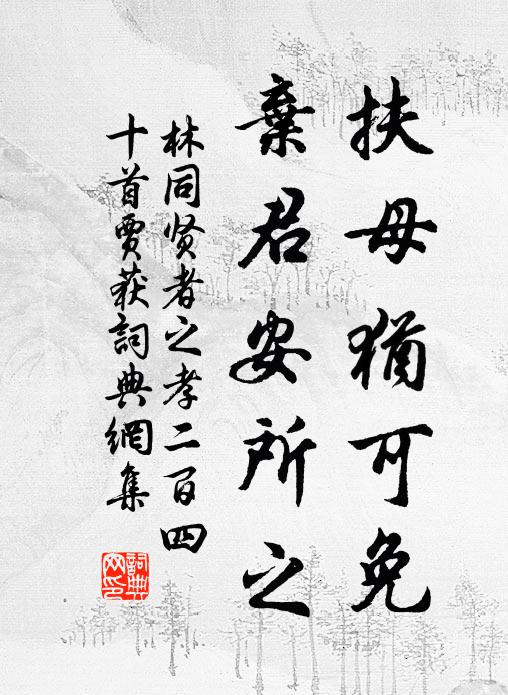 扶母猶可免
棄君安所之
林同贤者之孝二百四
十首賈获詞典網集
詞典网印